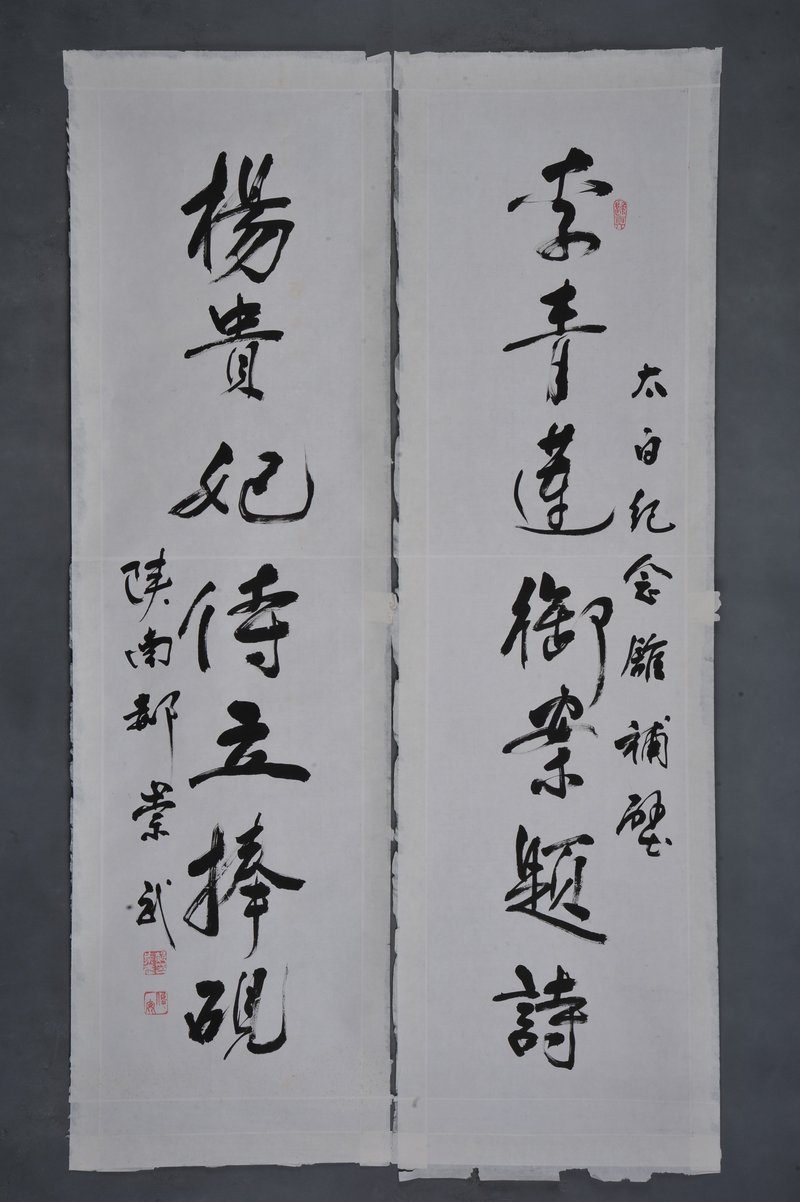 李青莲御案题詩
太白纪念館補壁
楊貴妃侍立捧硯
陕南郝崇武